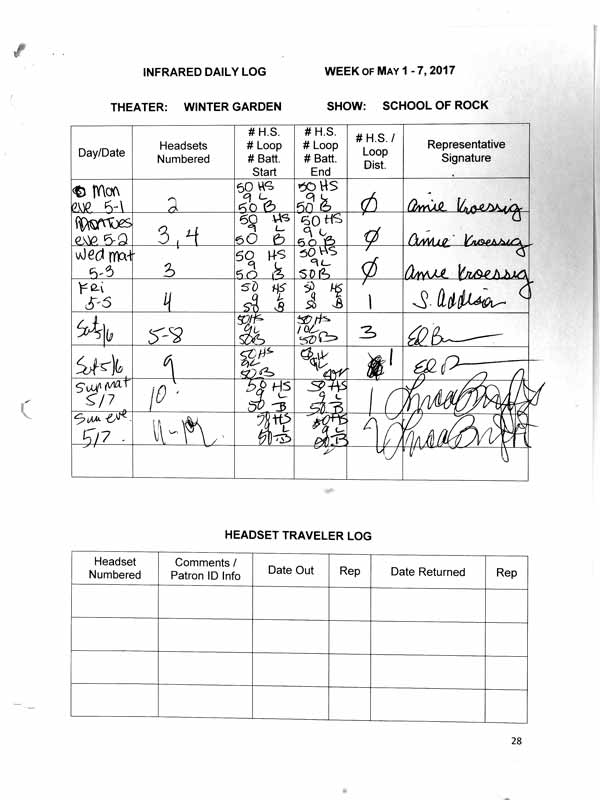 INFRARED DAILY LOG WEEK OF MAY 1 - 7, 2017
THEATER: WINTER GARDEN SHOW: SCHOOL OF ROCK
Day/Date
Headsets
Numbered
# H.S.
# Loop
# Batt.
Start
# H.S.
# Loop
# Batt.
End
# H.S. /
Loop
Dist.
Representative
Signature
Mon
eve 5-1
2
50 HS
9 L
50 B
50 HS
9 L
50 B
Ø
Amie Kroessig
Tues
eve 5-2
3, 4
50 HS
9 L
50 B
50 HS
9 L
50 B
Ø
Amie Kroessig
Wed mat
5-3
3
50 HS
9 L
50 B
50 HS
9 L
50 B
Ø
Amie Kroessig
Fri
5-5
4
50 HS
9 L
50 B
50 HS
9 L
50 B
1
S. Addison
Sat 5/6
5-8
50 HS
9 L
50 B
50 HS
10 L
50 B
3
Sat 5/6
9
50 HS
9 L
50 B
1
Sun mat
5/7
10
50 HS
9 L
50 B
50 HS
9 L
50 B
1
Sun eve
5/7
50 HS
9 L
50 B
HS
9 L
B
HEADSET TRAVELER LOG
Headset
Numbered
Comments /
Patron ID Info
Date Out
Rep
Date Returned
Rep
28